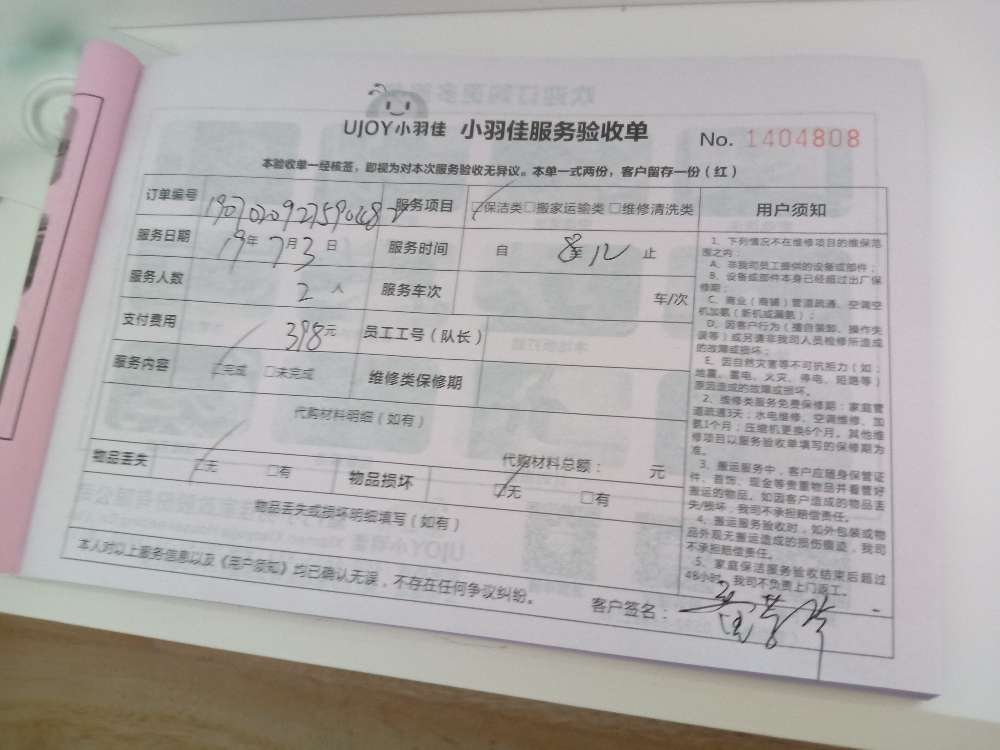 UJOY小羽佳 小羽佳服务验收单 No. 1404808
本验收单一经核签，即视为对本次服务验收无异议。本单一式两份，客户留存一份（红）
订单编号 服务项目 □保洁类□搬家运输类□维修清洗类
服务日期 19年7月3日 服务时间 自 8至12 止
服务人数 2人 服务车次 车/次
支付费用 398元 员工工号（队长）
服务内容 □完成 □未完成 维修类保修期
代购材料明细（如有）
代购材料总额： 元
物品丢失 □无 □有 物品损坏 □无 □有
物品丢失或损坏明细填写（如有）
本人对以上服务信息以及《用户须知》均已确认无误，不存在任何争议纠纷。
客户签名：
用户须知
1、下列情况不在维修项目的维保范
围之内：
A、非我司员工提供的设备或部件；
B、设备或部件本身已经超过出厂保
修期；
C、商业（商铺）管道疏通、空调空
机加氨（新机或漏氨）；
D、因客户行为（擅自装卸、操作失
误等）或另请非我司人员检修所造成
的故障或损坏；
E、因自然灾害等不可抗拒力（如：
地震、雷电、火灾、停电、短路等）
原因造成的故障或损坏。
2、维修类服务免费保修期：家庭管
道疏通3天；水电维修、空调维修、加
氨1个月；压缩机更换6个月。其他维
修项目以服务验收单填写的保修期为
准。
3、搬运服务中，客户应随身保管证
件、首饰、现金等贵重物品并看管好
搬运的物品。如因客户造成的物品丢
失/损坏，我司不承担赔偿责任。
4、搬运服务验收时，如外包装或物
品外观无搬运造成的损伤痕迹，我司
不承担赔偿责任。
5、家庭保洁服务验收结束后超过
48小时，我司不负责上门返工。